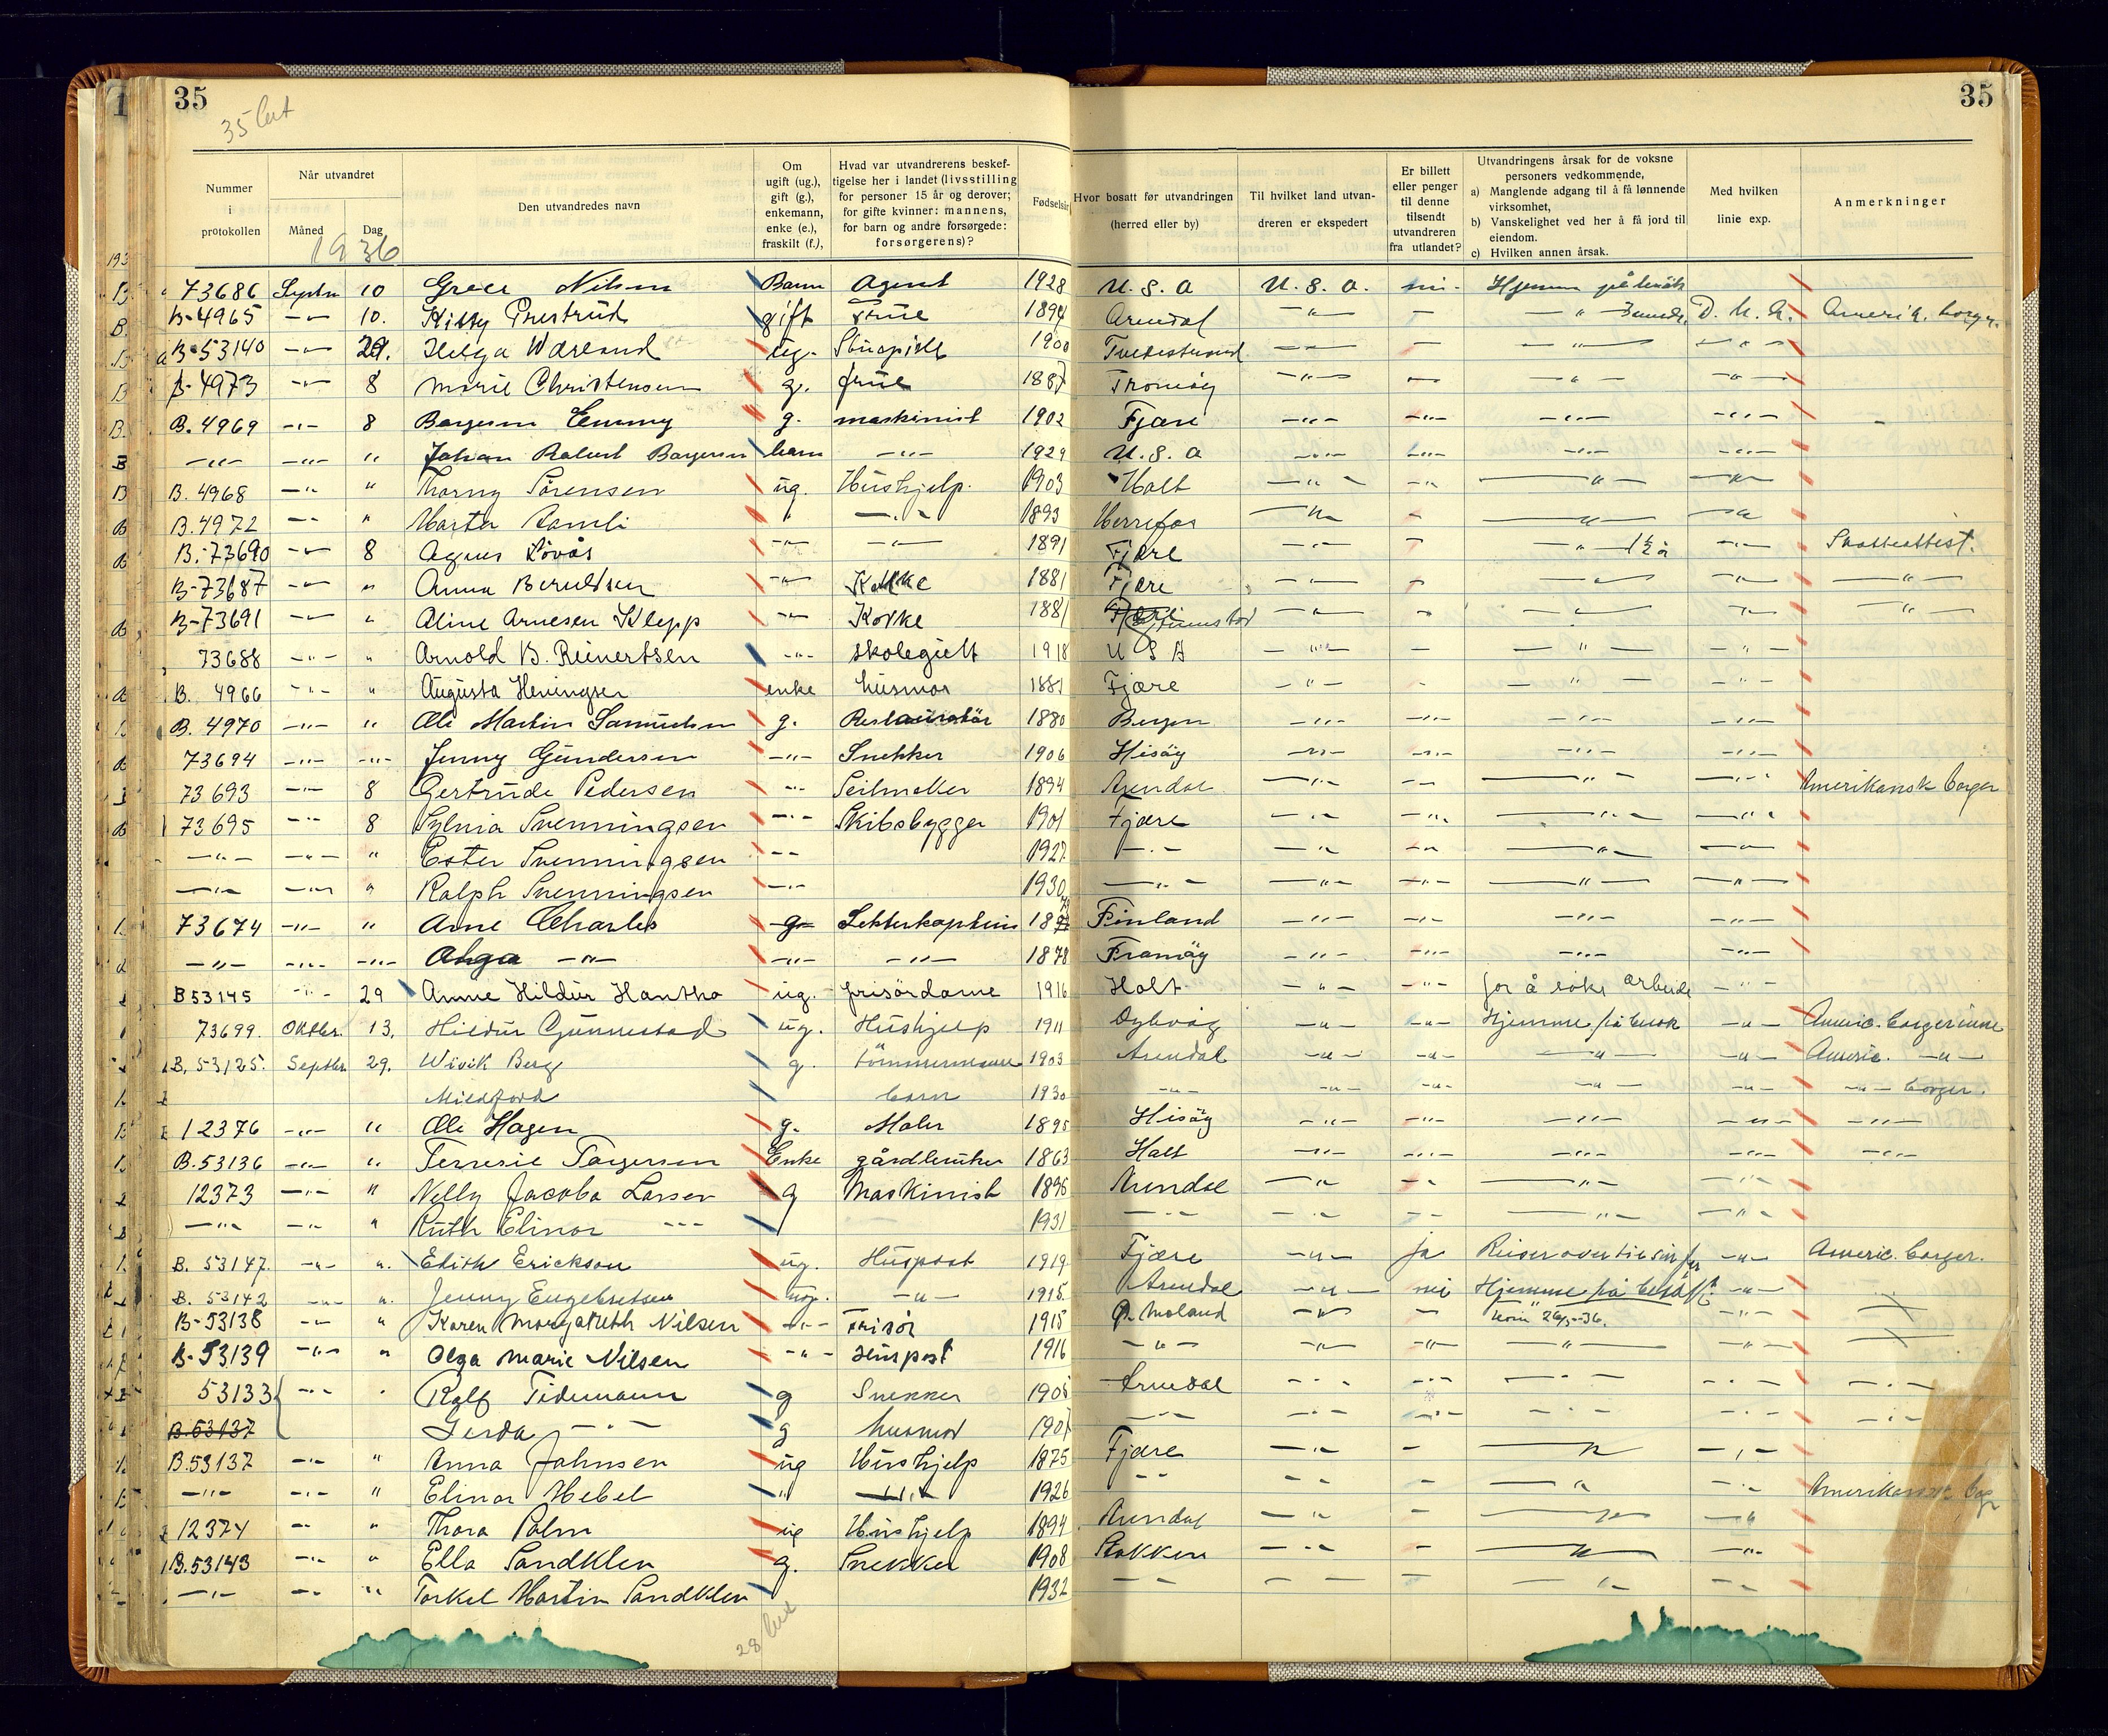 35
35
Nummer i protokollen
Når utvandret
Måned
Dag
Den utvandredes navn
Om ugift (ug.), gift (g.), enkemann, enke (e.), fraskilt (f.),
Hvad var utvandrerens beskeftigelse her i landet (livsstilling for personer 15 år og derover; for gifte kvinner: mannens, for barn og andre forsørgede: forsørgerens)?
Fødselsår
Hvor bosatt før utvandringen (herred eller by)
Til hvilket land utvandreren er ekspedert
Er billett eller penger til denne tilsendt utvandreren fra utlandet?
Utvandringens årsak for de voksne personers vedkommende,
a) Manglende adgang til å få lønnende virksomhet,
b) Vanskelighet ved her å få jord til eiendom.
c) Hvilken annen årsak.
Med hvilken linie exp.
Anmerkninger
1936
73686 Septbr 10 Grace Nilsen Barn Agent 1928 U.S.A U.S.A. nei Hjemme på besök
B-4965 -"- 10. Kitty Prestrud gift Frue 1894 Arendal -"- - -"- D.N.A. Amerik. borger
B-53140 -"- 29. Helga Wæraand ug. 1900 Tvedestrand -"- - -"- -"-
B-4973 -"- 8 Marie Christensen g. frue 1887 Tromöy -"- - -"- -"-
B.4969 -"- 8 Borgersen Emmy g. maskinist 1902 Fjære -"- -"- -"- -"-
-"- -"- " Johan Robert Borgersen barn -"- 1929 U.S.A -"- -"- -"- -"-
B.4968 -"- " Thorny Sörensen ug. Hushjelp. 1903 Holt -"- -"- -"- -"-
B.4972 -"- " Marta Ramli " -"- 1893 Herrefos -"- - -"- -"-
B.-73690 -"- 8 Agnes Lövås -"- -"- 1891 Fjære -"- - -"- 1½ år -"- Skatteattest.
B-73687 -"- " Anna Berntsen -"- Kokke 1881 Fjære -"- - -"- -"- -"-
B-73691 -"- " Aline Arnesen Klepp -"- Kokke 1881 Grimstad -"- - -"- -"- -"-
73688 -"- " Arnold B. Reinertsen -"- skolegutt 1918 USA -"- - -"- -"-
B. 4966 -"- " Augusta Heningsen enke husmor 1881 Fjære -"- - -"- -"-
B. 4970 -"- " Ole Martin Samuelsen g. Restauratör 1880 Bergen -"- -"- -"- -"-
73694 -"- -"- Jenny Gundersen -"- Snekker 1906 Hisöy -"- -"- -"- -"-
73693 -"- 8 Gertrude Pedersen -"- Seilmaker 1894 Arendal -"- -- -"- -"- Amerikansk borger
73695 -"- 8 Sylvia Svenningsen -"- Skibsbygger 1901 Fjære -"- -"- -"- -"-
-"- -"- " Ester Svenningsen -- 1927 -"- -"- -"- -"- -"-
-"- -"- " Ralph Svenningsen -"- 1930 -"- -"- -"- -"- -"-
73674 -"- " Arne Charles g. Lekterkaptein Finland -"- -"- -"- -"-
-"- -"- -"- -"- -"- -"- 1878 Tromöy -"- -"- -"- -"-
B53145 -"- 29 Anne Hildur Hantho ug. frisördame 1916 Holt -"- -"- for å söke arbeide -"-
73699. Oktbr. 13. Hildur Gunnestad ug. Hushjelp 1911 Dybvåg -"- -"- Hjemme på besøk -"- Americ. borgerinne
B.53125. Septbr 29. Wivik Berg g. tömmermann 1903 Arendal -"- -"- -"- -"- Americ. -"-
Mildford barn 1930 -"- -"- -"- -"- -"- -"- borger.
12376 -"- " Ole Hagen g. Maler 1895 Hisöy -"- -"- -"- -"- -"-
B.53136 -"- " Terresie Torgersen Enke gårdbruker 1863 Holt -"- -"- -"- -"- -"-
12373 -"- " Nelly Jacoba Larsen g Maskinist 1896 Arendal -"- -"- -"- -"-
-"- -"- " Ruth Elinor --- 1931 -"- -"- -- -"- -"-
B. 53147. -"- ". Edith Erickson ug. Huspost 1919 Fjære -"- ja Reiser over til sin far -"- Americ. borger.
B. 53142 -"- ". Jenny Engebretsen ug. -"- 1915 Arendal -"- nei Hjemme på besök -"-
B-53138 -"- " Karen Margareth Nilsen -"- Frisör 1915 Ö. Moland -"- -"- -"-
B-53139 -"- " Olga Marie Nilsen -"- Huspost 1916 -"- -"- -"- -"- -"-
53133 -"- " Rolf Tidemann g Snekker Arendal -"- -"- -"- -"- -"-
B.53137 Gerda -"- g husmor -"- -"- -"- -"- -"-
B.53137 -"- " Anna Johnsen ug Hushjelp 1875 Fjære -"- - -"- -"-
-"- -"- " Elinor Hebel " -"- 1926 -"- -"- - -"- -"- Amerikansk borger
12374 -"- " Thora Palm ug Hushjelp 1894 Arendal -"- - -"- -"-
B.53143 -"- " Ella Sandklev g. Snekker 1908 Stokken -"- - -"- -"-
-"- -"- " Torkel Martin Sandklev 1932 -"- -"- -"- -"-